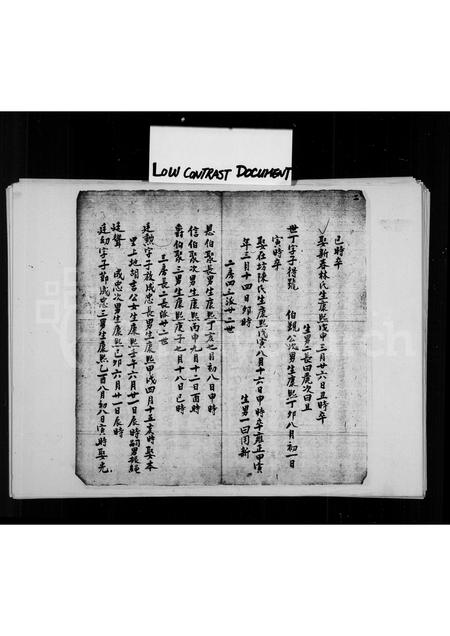 LOW CONTRAST DOCUMENT
巳時卒
娶新春林氏生康熙戊申三月廿六日丑時卒
生男二長曰虎次曰旦
世丁字子得號 伯觀公次男生康熙丁卯八月初一日
寅時卒
娶在坊陳氏生康熙戊寅八月十六日申時卒雍正甲寅
年三月十四日卯時 生男一曰開新
二房四上派廿二世
伯聚長男生康熙丁亥七月初八日申時
信伯聚次男生康熙丙申九月十二日酉時
爵伯聚三男生康熙庚子七月十八日巳時
三房長二長派廿一世
廷勲字子放成忠長男生康熙甲戌四月十五亥時娶本
里上地胡言公女生康熙壬年六月廿一日辰時嗣男振純
廷聲 成忠次男生康熙己卯六月廿一日辰時
廷幼字子節成忠三男生康熙乙酉八月初八日寅時娶光